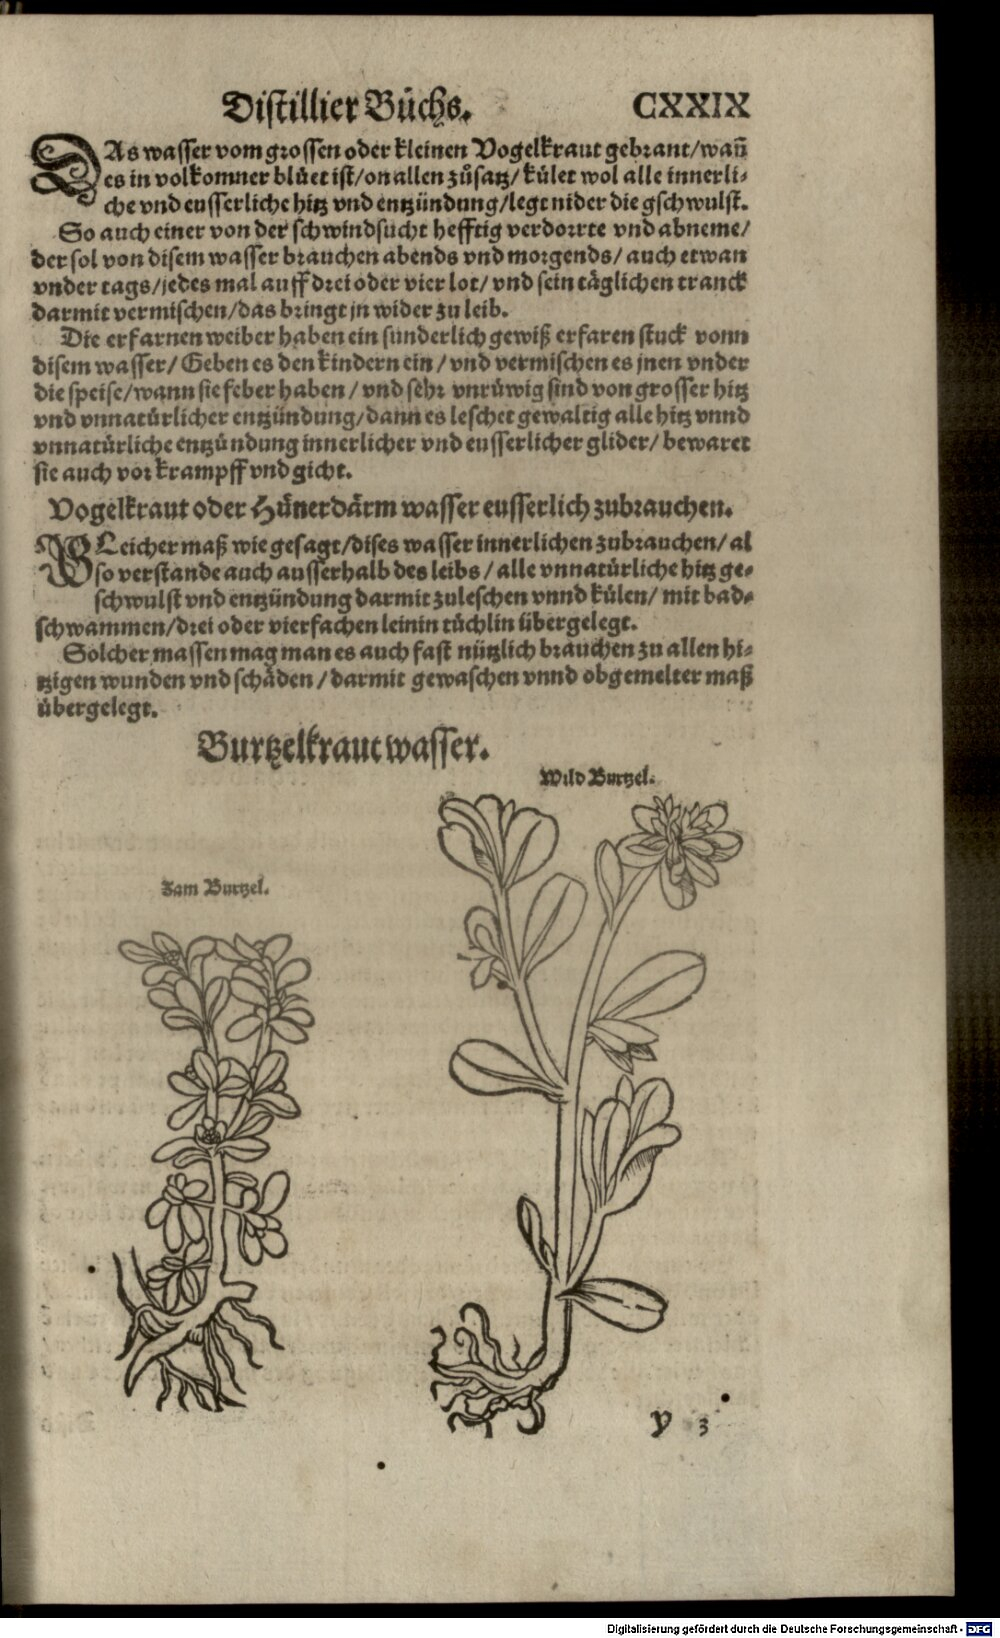 Distillier Bůchs. CXXIX
DAs wasser vom grossen oder kleinen Vogelkraut gebrant/wañ
es in volkomner blůet ist/on allen zůsatz/kület wol alle innerli-
che vnd eusserliche hitz vnd entzündung/legt nider die gschwulst.
So auch einer von der schwindsucht hefftig verdorrte vnd abneme/
der sol von disem wasser brauchen abends vnd morgends/auch etwan
vnder tags/jedes mal auff drei oder vier lot/vnd sein täglichen tranck
darmit vermischen/das bringt jn wider zu leib.
Die erfarnen weiber haben ein sunderlich gewiß erfaren stuck vonn
disem wasser/Geben es den kindern ein/vnd vermischen es jnen vnder
die speise/wann sie feber haben/vnd sehr vnrüwig sind von grosser hitz
vnd vnnatürlicher entzündung/dann es leschet gewaltig alle hitz vnnd
vnnatürliche entzündung innerlicher vnd eusserlicher glider/bewaret
sie auch vor krampff vnd gicht.
Vogelkraut oder Hünerdärm wasser eusserlich zubrauchen.
GLeicher maß wie gesagt/dises wasser innerlichen zubrauchen/al
so verstande auch ausserhalb des leibs/alle vnnatürliche hitz ge-
schwulst vnd entzündung darmit zuleschen vnnd külen/mit bad-
schwammen/drei oder vierfachen leinin tüchlin übergelegt.
Solcher massen mag man es auch fast nützlich brauchen zu allen hi-
tzigen wunden vnd schäden/darmit gewaschen vnnd obgemelter maß
übergelegt.
Burtzelkraut wasser.
Wild Burtzel.
Zam Burtzel.
y 3
Digitalisierung gefördert durch die Deutsche Forschungsgemeinschaft - DFG